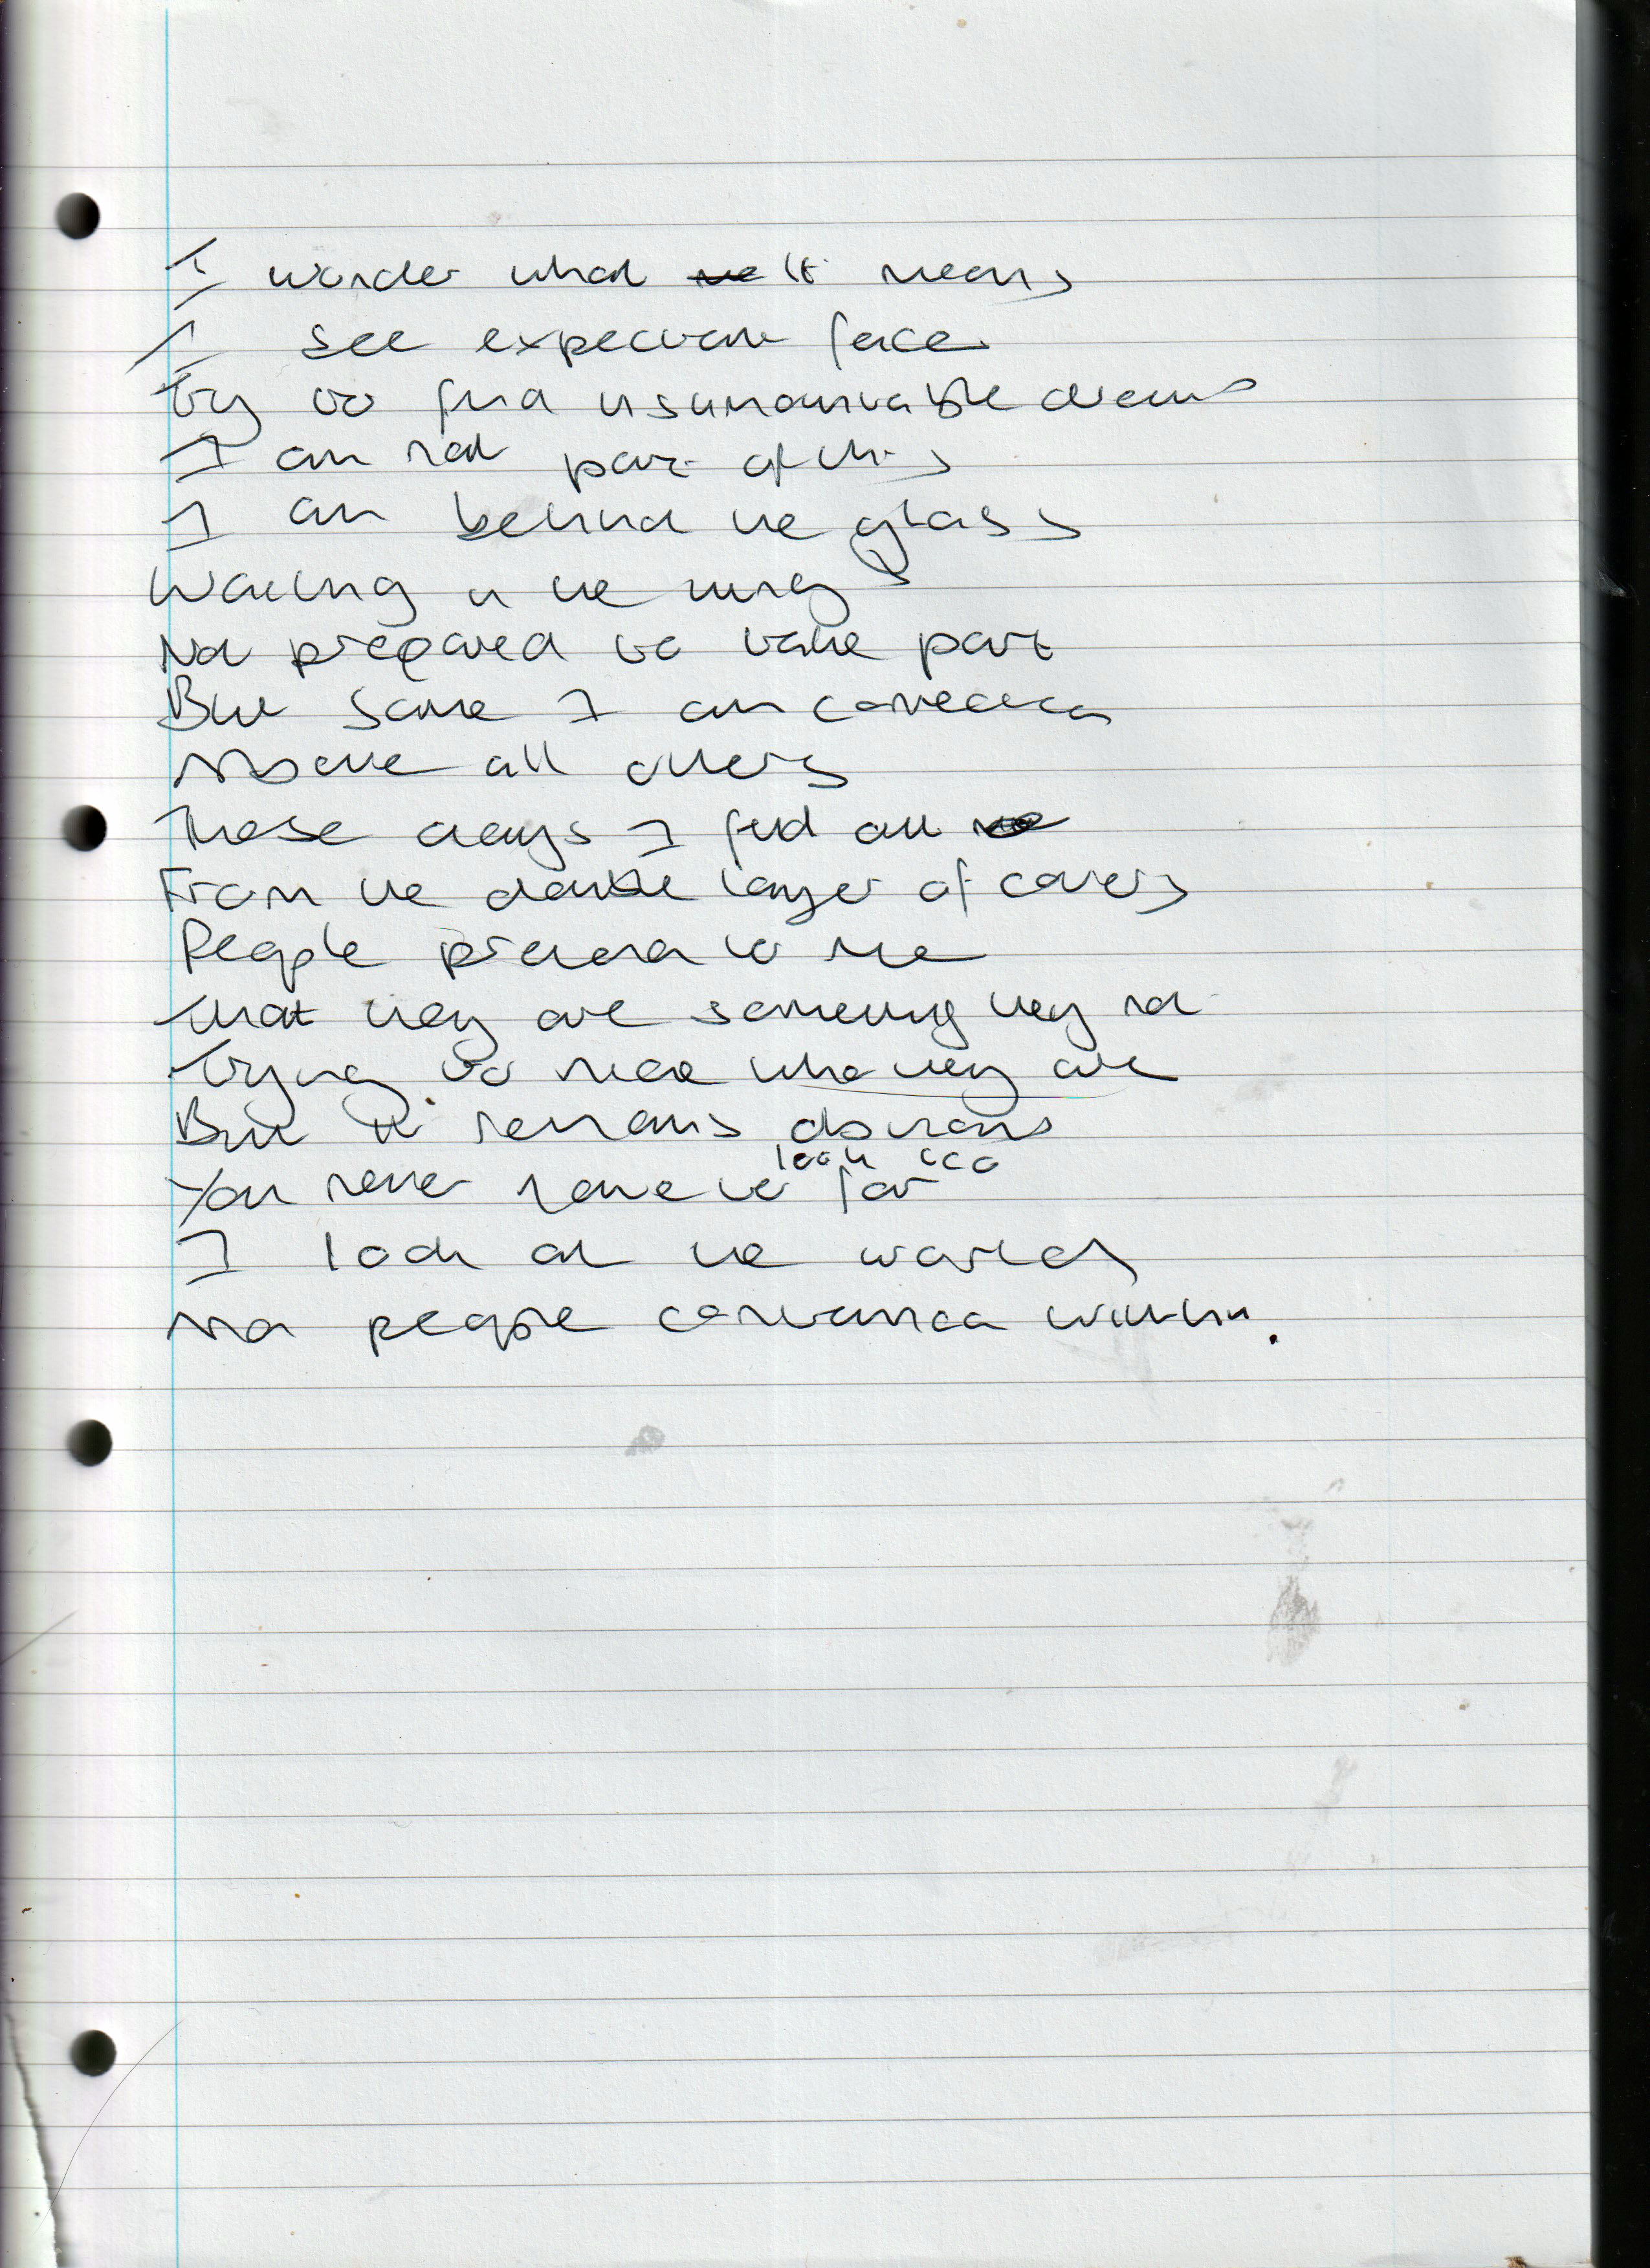 I wonder what it means
I see expectant faces
Try to find insurmountable dreams
I am not part of this
I am behind the glass
Waiting in the wings
Not prepared to take part
But some I am connected
Above all others
These days I find out
From the double layer of covers
People pretend to me
That they are something they not
Trying to hide who they are
But it remains obvious
You never have to look too far
I look at the world
And people contained within.